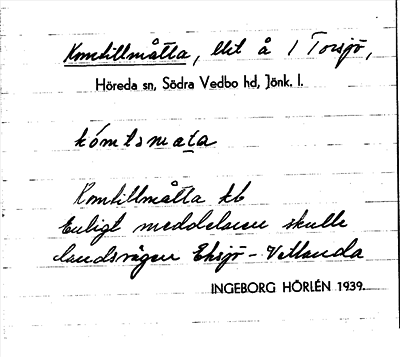 Komtillmåtta, lht å 1 Torsjö,
Höreda sn, Södra Vedbo hd, Jönk. l.
kómtsmata
Komtillmåtta kb
Enligt meddelaren skulle
landsvägen Eksjö-Vetlanda
INGEBORG HÖRLÉN 1939.